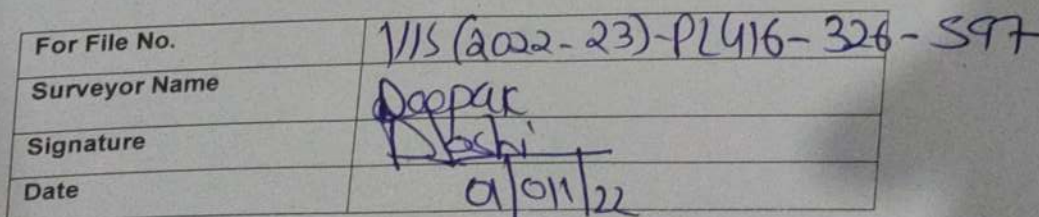 For File No. VIS (2022-23)-PL416-326-597
Surveyor Name Deepak
Signature DJoshi
Date 01/011/22